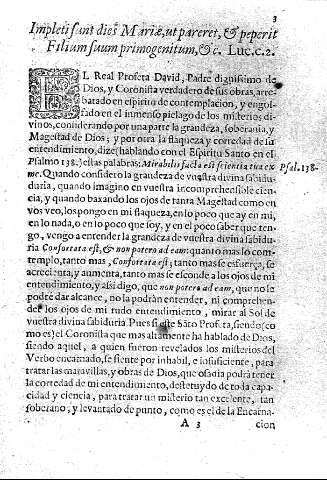 3
Impleti sunt dies Mariæ, ut pareret, & peperit
Filium suum primogenitum, &c. Luc.c.2.
EL Real Profeta David, Padre dignissimo de
Dios, y Coronista verdadero de sus obras, arre-
batado en espiritu de contemplacion, y engol-
fado en el inmenso pielago de los misterios di-
vinos, considerando por una parte la grandeza, soberania, y
Magestad de Dios; y por otra la flaqueza, y cortedad de su
entendimiento, dize (hablando con el Espiritu Santo en el
Psalmo 138.) estas palabras: Mirabilis facta est scientia tua ex
me. Quando considero la grandeza de vuestra divina sabidu-
duria, quando imagino en vuestra incomprehensible cien-
cia, y quando baxando los ojos de tanta Magestad como en
vos veo, los pongo en mi flaqueza, en lo poco que ay en mi,
en lo nada, o en lo poco que soy, y en el poco saber que ten-
go, vengo a entender la grandeza de vuestra divina sabidu-
ria Confortata est, & non potero ad eam: quanto mas lo con-
templo, tanto mas, Confortata est; tanto mas se esfuerça, se
acrecienta, y aumenta, tanto mas se esconde a los ojos de mi
entendimiento, y assi digo, que non potero ad eam, que no se
podrè dar alcance, no la podràn entender, ni comprehen-
der los ojos de mi rudo entendimiento, mirar al Sol de
vuestra divina sabiduria. Pues si este Sãto Profeta, siendo (co
mo es) el Coronista que mas altamente ha hablado de Dios,
siendo aquel, a quien fueron revelados los misterios del
Verbo encarnado, se siente por inhabil, e insuficiente, para
tratar las maravillas, y obras de Dios, que osadia podrà tener
la cortedad de mi entendimiento, destetuydo de toda capa-
cidad y ciencia, para tratar un misterio tan excelente, tan
soberano, y levantado de punto, como es el de la Encarna-
Psal. 138.
A 3 cion